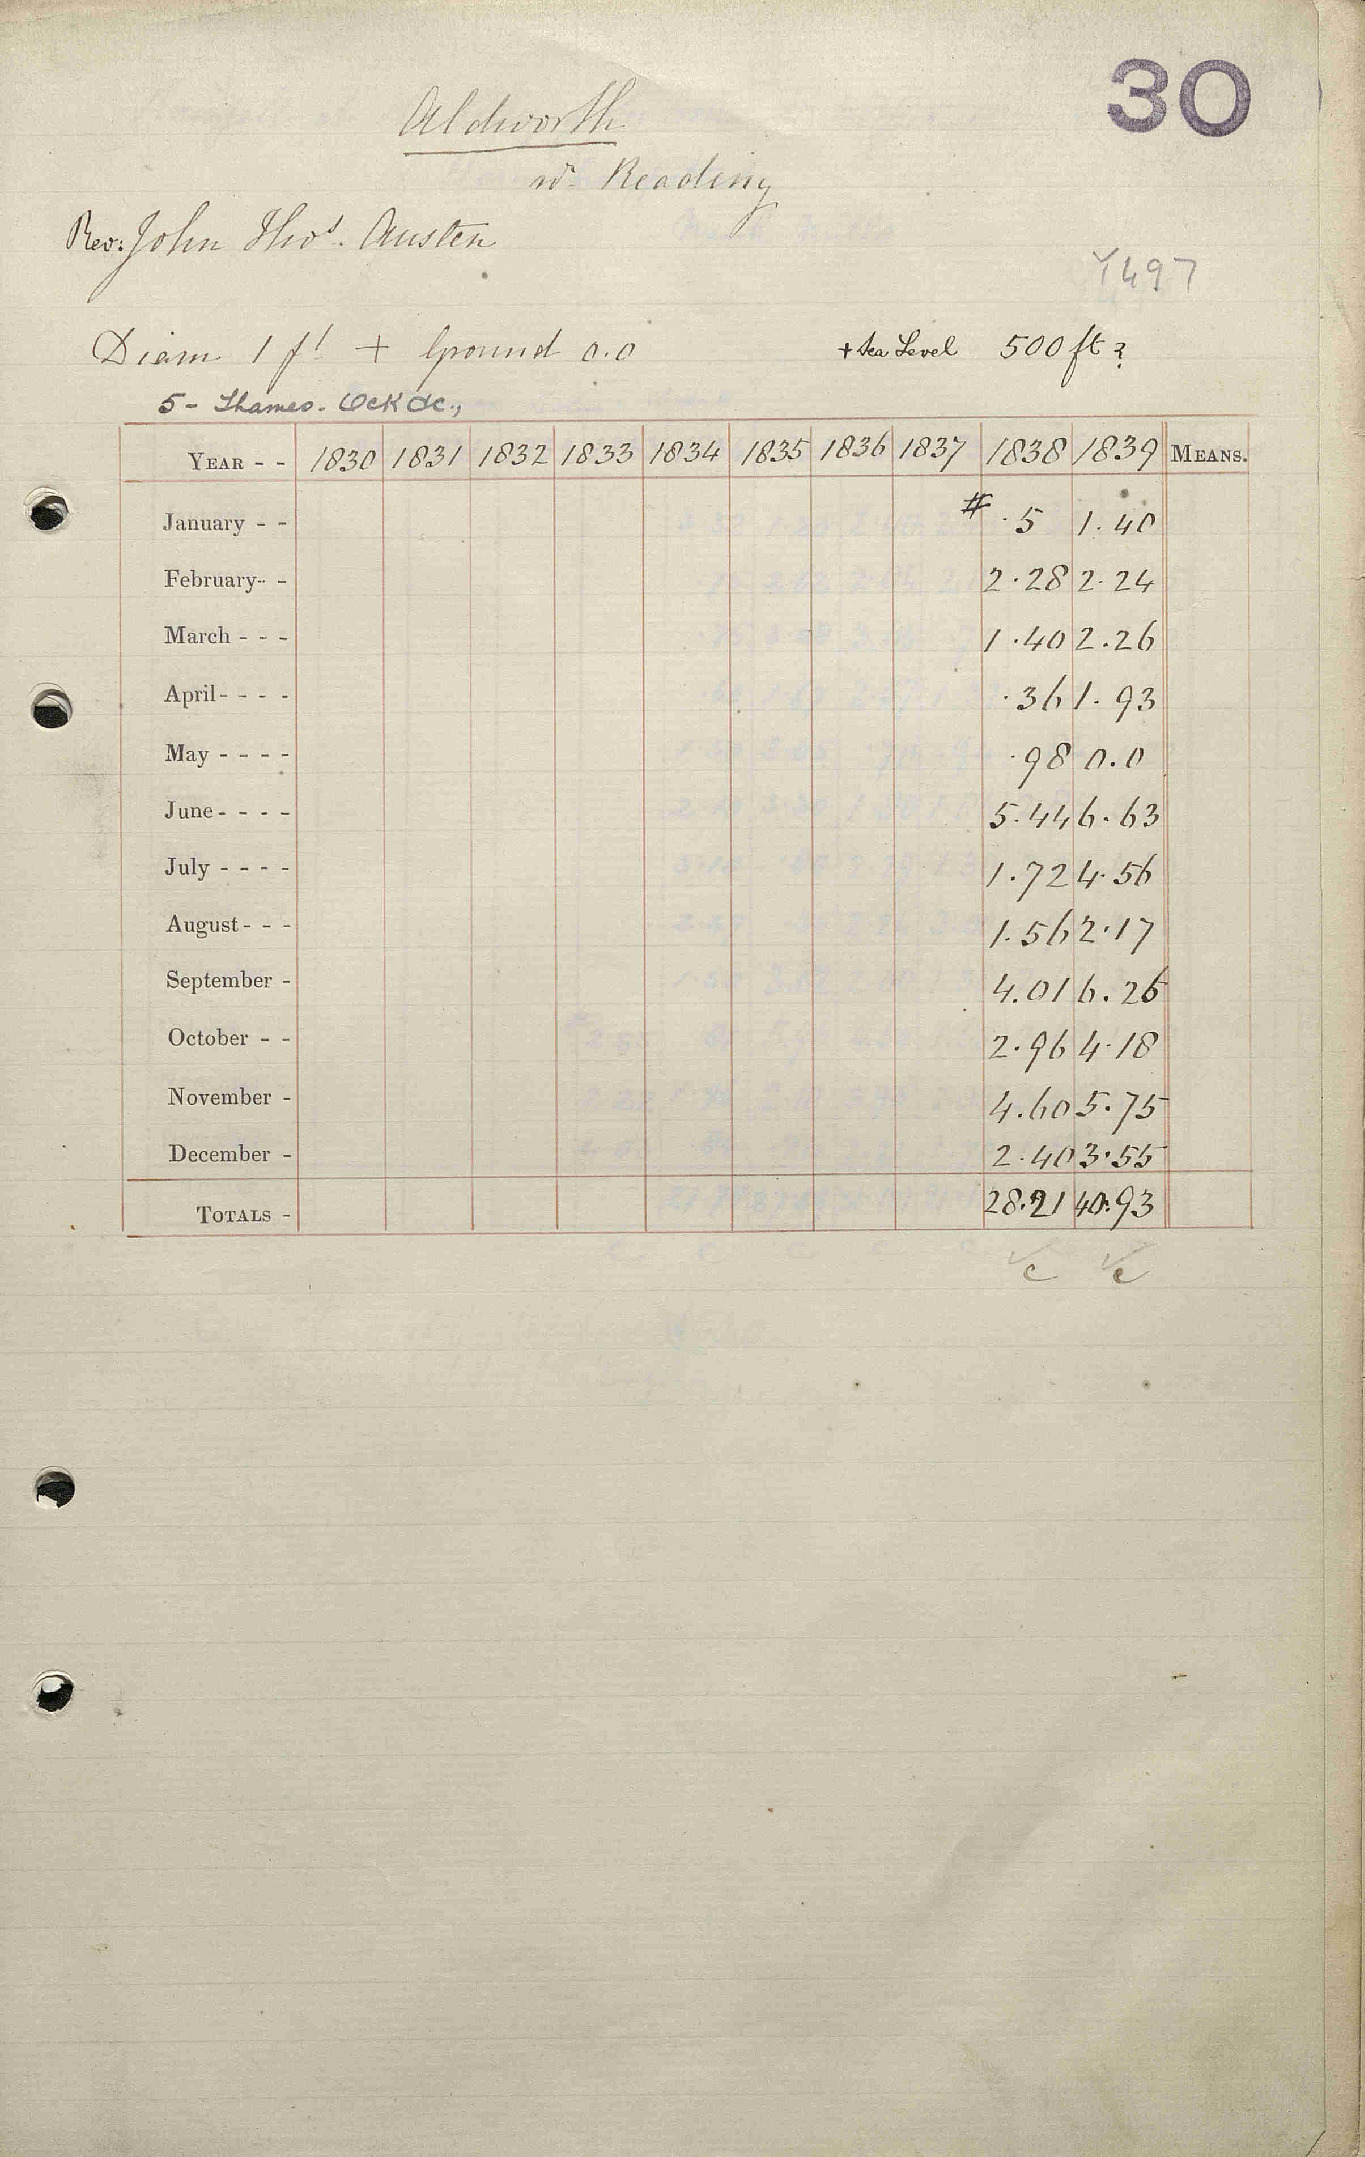 30
Aldworth
nr Reading
Rev: John Thos. Austen
Y497
Diam 1 ft + Ground 0.0 + Sea Level 500 ft ?
5 - Thames. Ock &c.,
YEAR - - 1830 1831 1832 1833 1834 1835 1836 1837 1838 1839 MEANS.
January - - # .5 1.40
February - - 2.28 2.24
March - - - 1.40 2.26
April - - - - .36 1.93
May - - - - .98 0.0
June - - - - 5.44 6.63
July - - - - 1.72 4.56
August - - - 1.56 2.17
September - 4.01 6.26
October - - 2.96 4.18
November - 4.60 5.75
December - 2.40 3.55
TOTALS - 28.21 40.93
✓c ✓c